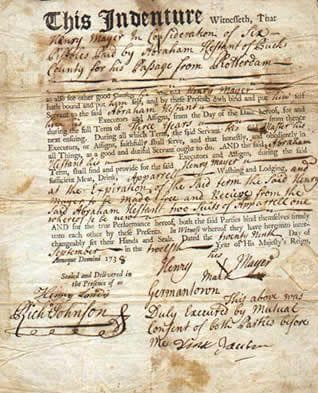 This Indenture Witnesseth, That
Henry Mayer In Consideration of Six
Pistoles Paid by Abraham Hestant of Bucks
County for his Passage from Rotterdam
as also for other good Causes he the said Henry Mayer
hath bound and put him self, and by these Presents doth bind and put him self
Servant to the said Abraham Hestant
Executors and Assigns, from the Day of the Date hereof, for and
during the full Term of Three Years
next ensuing. During all which Term, the said Servant the said Abraham
Hestant his Executors, or Assigns, faithfully shall serve, and that honestly, and obediently in
all Things, as a good and dutiful Servant ought to do. AND the said Abraham
Hestant his Executors and Assigns, during the said
Term, shall find and provide for the said Henry Mayer
Sufficient Meat, Drink, Apparrel Washing and Lodging, and
at the Expiration of the said term the said Henry
Mayer to be made free and Receive from the
said Abraham Hestant two Suits of Apparrel one
whereof to be new
AND for the true Performance hereof, both the said Parties bind themselves firmly
unto each other by these Presents. In Witness whereof they have hereunto inter-
changeably set their Hands and Seals. Dated the Day of
September in the twelfth Year of His Majesty's Reign,
Annoque Domini 1738
his
Henry Mayer
Mark
Sealed and Delivered in
the Presence of us
Rich Johnson
Germantown
This above was
Duly Execured by Mutual
Consent of both the Parties before
Me